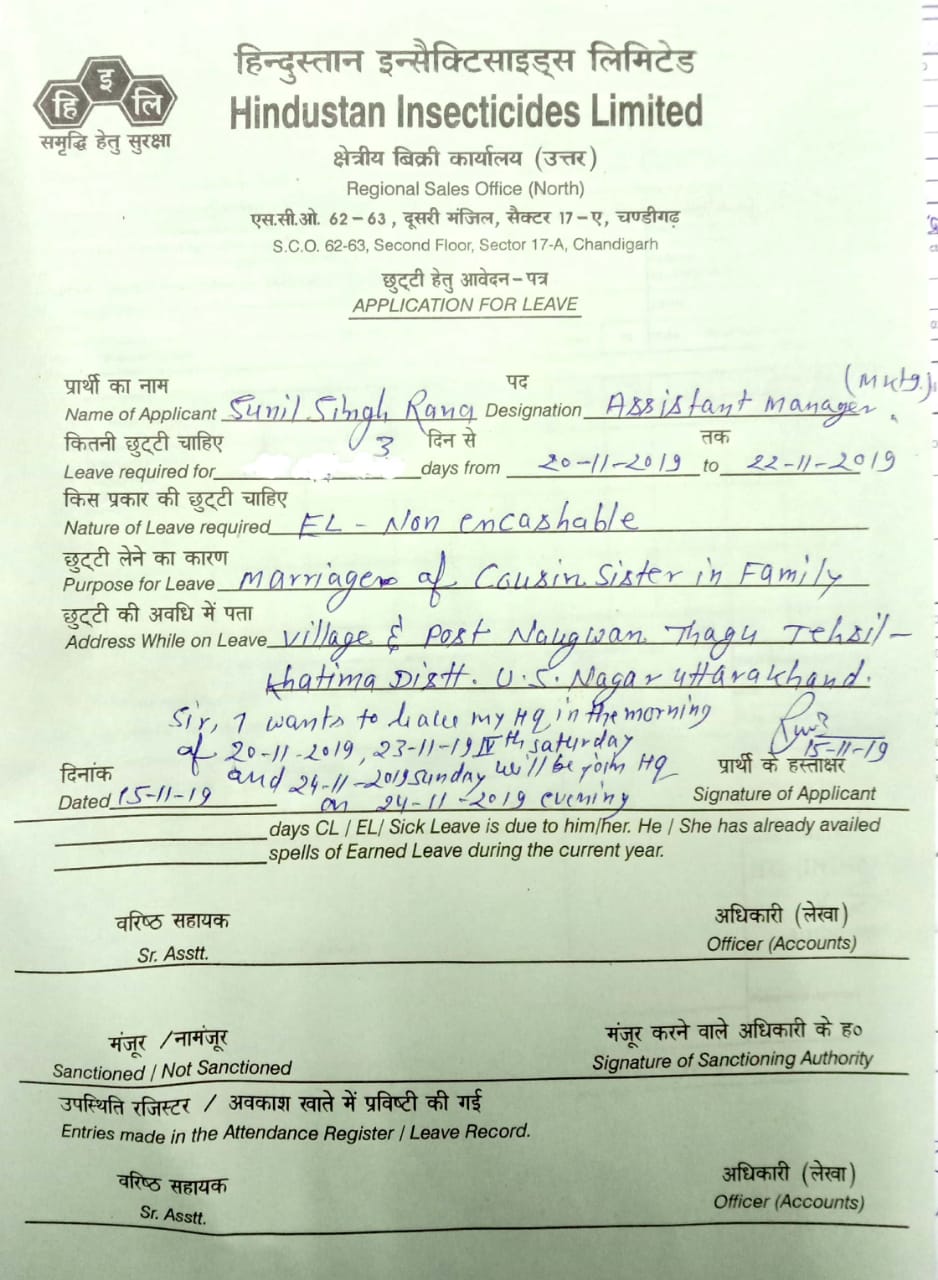 हि इ लि
समृद्धि हेतु सुरक्षा
हिन्दुस्तान इन्सैक्टिसाइड्स लिमिटेड
Hindustan Insecticides Limited
क्षेत्रीय बिक्री कार्यालय (उत्तर)
Regional Sales Office (North)
एस.सी.ओ. 62-63, दूसरी मंजिल, सैक्टर 17-ए, चण्डीगढ़
S.C.O. 62-63, Second Floor, Sector 17-A, Chandigarh
छुट्टी हेतु आवेदन-पत्र
APPLICATION FOR LEAVE
प्रार्थी का नाम पद (Mktg.)
Name of Applicant Sunil Singh Rana Designation Assistant Manager.
कितनी छुट्टी चाहिए 3 दिन से तक
Leave required for days from 20-11-2019 to 22-11-2019
किस प्रकार की छुट्टी चाहिए
Nature of Leave required EL - Non encashable
छुट्टी लेने का कारण
Purpose for Leave Marriage of Cousin Sister in Family
छुट्टी की अवधि में पता
Address While on Leave Village & Post Naugwan Thagu Tehsil-
Khatima Distt. U.S. Nagar Uttarakhand.
Sir, I wants to leave my HQ in the morning
of 20-11-2019, 23-11-19 IVth saturday 15-11-19
दिनांक and 24-11-2019 sunday will be join HQ प्रार्थी के हस्ताक्षर
Dated 15-11-19 on 24-11-2019 evening Signature of Applicant
days CL / EL/ Sick Leave is due to him/her. He / She has already availed
spells of Earned Leave during the current year.
वरिष्ठ सहायक अधिकारी (लेखा)
Sr. Asstt. Officer (Accounts)
मंजूर /नामंजूर मंजूर करने वाले अधिकारी के ह०
Sanctioned / Not Sanctioned Signature of Sanctioning Authority
उपस्थिति रजिस्टर / अवकाश खाते में प्रविष्टी की गई
Entries made in the Attendance Register / Leave Record.
वरिष्ठ सहायक अधिकारी (लेखा)
Sr. Asstt. Officer (Accounts)